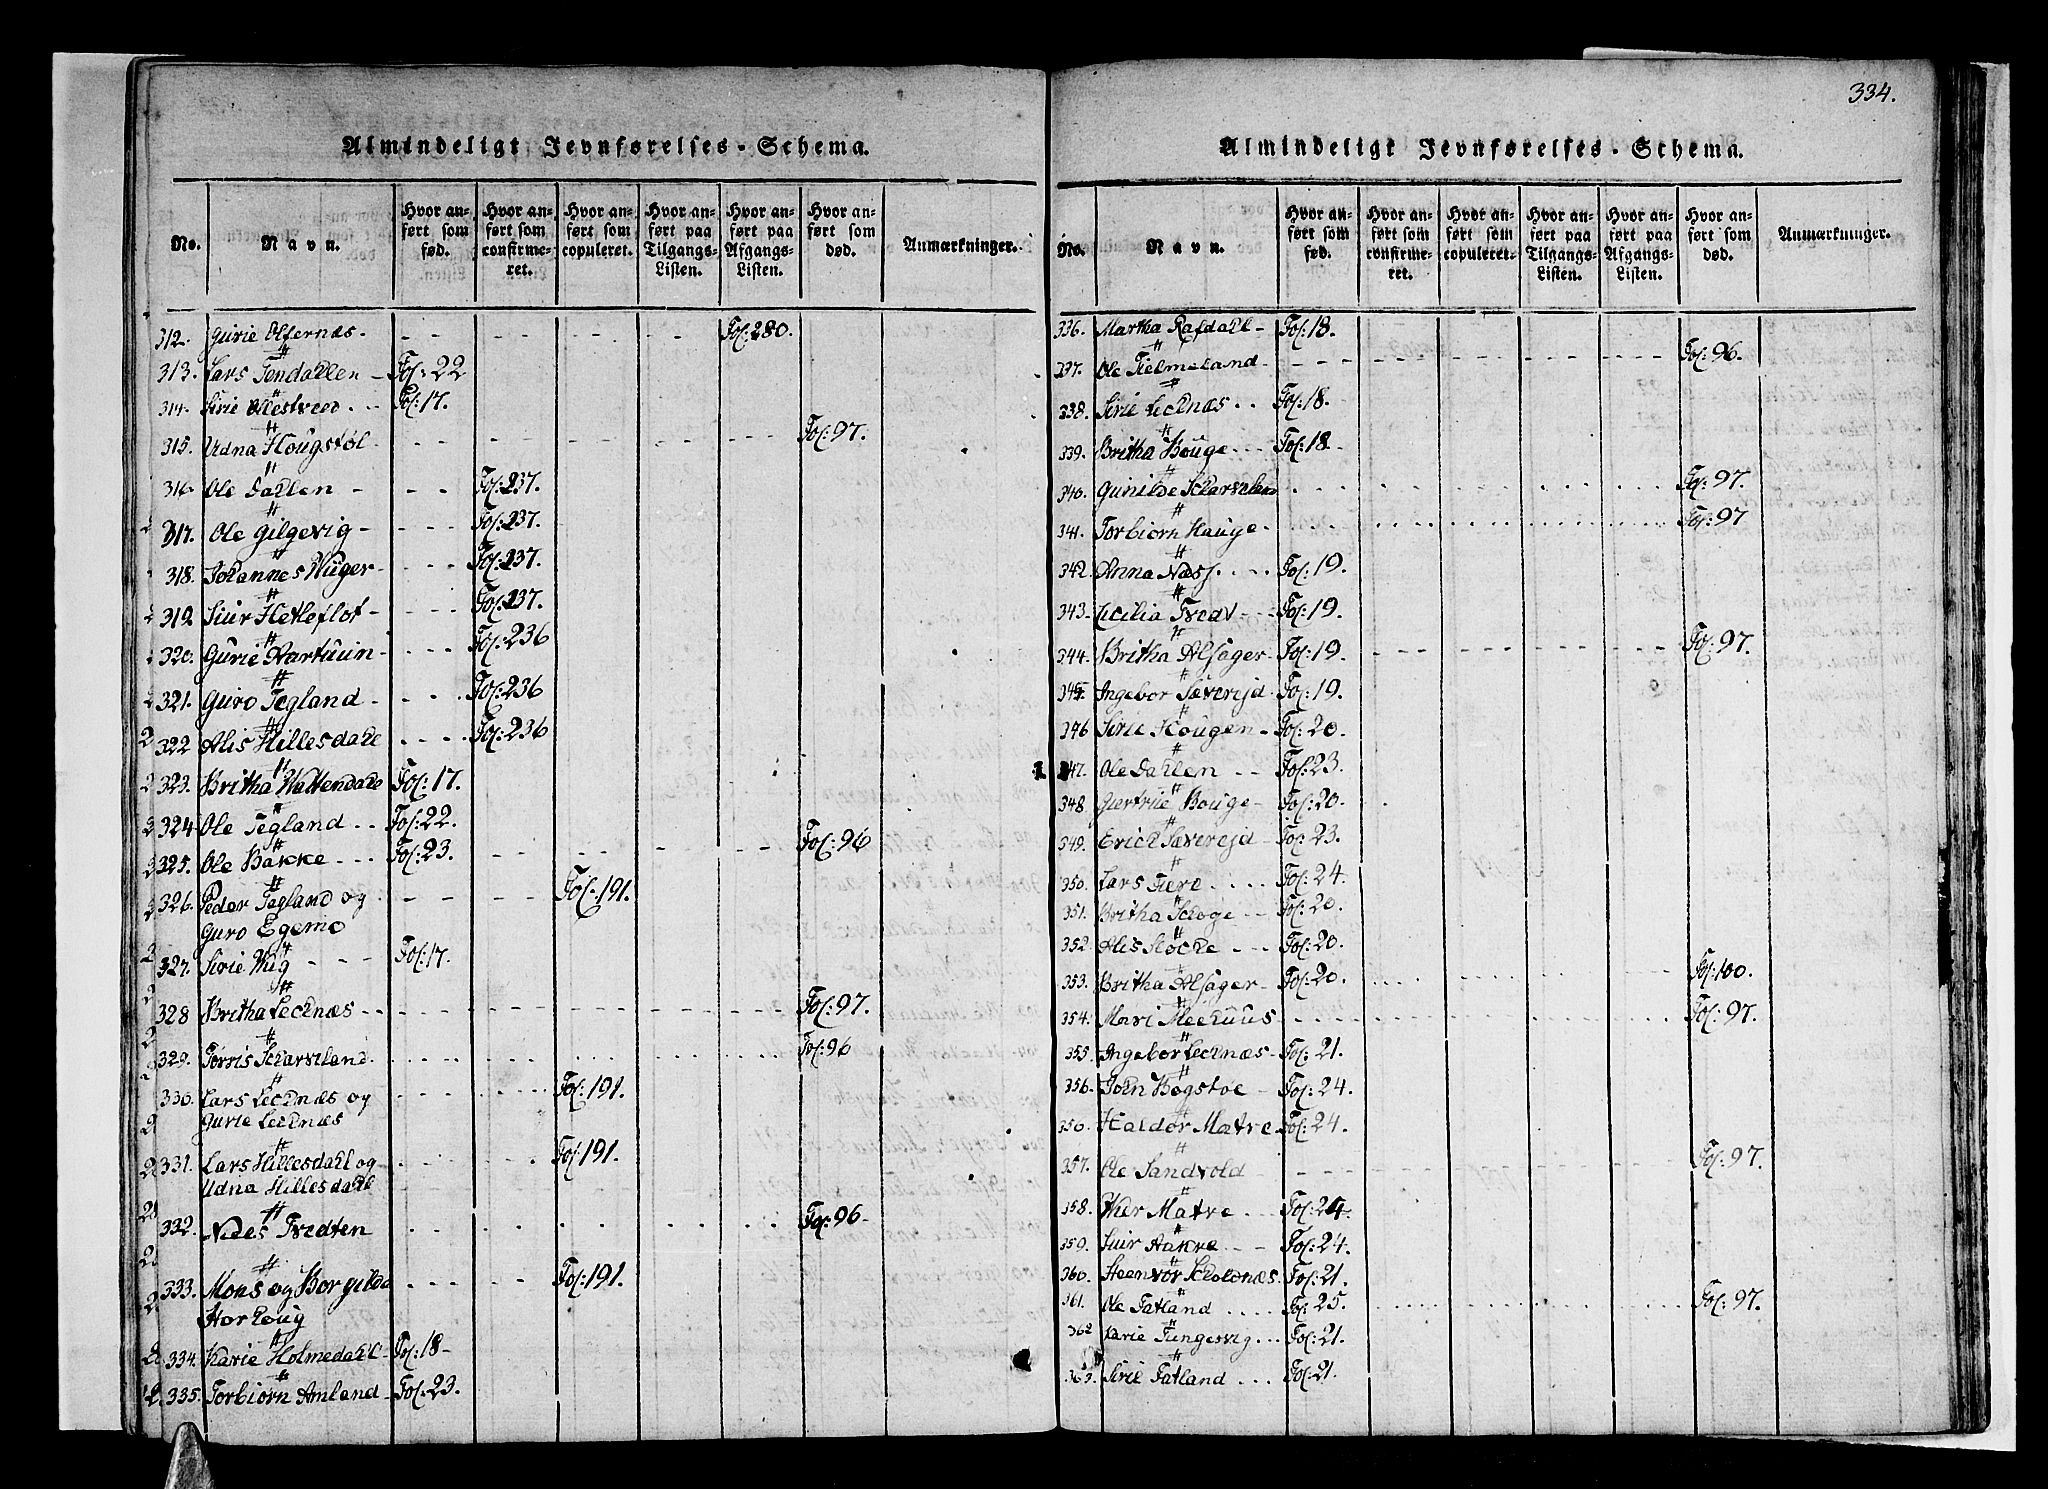 334.
Almindeligt Jevnførelses-Schema.
No.
Navn.
Hvor anført som fød.
Hvor anført som confirmeret.
Hvor anført som copuleret.
Hvor anført paa Tilgangs-Listen.
Hvor anført paa Afgangs-Listen.
Hvor anført som død.
Anmærkninger.
312. Gurie Olfernæs - Fol: 280.
313. Lars Tendahlen - Fol: 22
314. Sirie Ollestved Fol: 17.
315. Udna Hougstøl - Fol: 97.
316. Ole Dahlen - Fol: 237.
317. Ole Gilgevig - Fol: 237.
318. Johannes Wuger - Fol: 237.
319. Siur Hetleflot - Fol: 237.
320. Gurie Aartuun - Fol: 236
321. Guro Tegland - Fol: 236
322. Alis Hillesdahl Fol: 236
323. Britha Wattendahl Fol: 17.
324. Ole Tegland Fol: 22.
325. Ole Bakke Fol: 23. Fol: 96
326. Peder Tegland og Fol: 191.
Guro Egemo
327. Sirie Wiig Fol: 17.
328 Britha Lechnæs Fol: 97.
329. Torris Scharveland Fol: 96
330. Lars Lechnæs og Fol: 191.
Gurie Lechnæs
331. Lars Hillesdahl og Fol: 191.
Udna Hillesdahl
332. Niels Tredten Fol: 96
333. Mons og Borgilda Fol: 191.
Storhoug
334. Karie Holmedahl Fol: 18
335. Torbiorn Amland Fol: 23.
Almindeligt Jevnførelses-Schema.
No.
Navn.
Hvor anført som fød.
Hvor anført som confirmeret.
Hvor anført som copuleret.
Hvor anført paa Tilgangs-Listen.
Hvor anført paa Afgangs-Listen.
Hvor anført som død.
Anmærkninger.
336. Martha Rafdahl Fol: 18.
337. Ole Tielmeland Fol: 96.
338. Sirie Lechnæs Fol: 18.
339. Britha Bouge Fol: 18.
340. Gunilde Fol: 97.
341. Torbiorn Hauge Fol: 97
342. Anna Næss Fol: 19.
343. Cecilia Tredt Fol: 19.
344. Britha Alsager Fol: 19. Fol: 97.
345. Ingebor Sævereid Fol: 19.
346 Sirie Hougen Fol: 20.
347. Ole Dahlen Fol: 23.
348. Giertrue Bouge Fol: 20.
349. Erich Sævereid Fol: 23.
350. Lars Tiere Fol: 24.
351. Britha Schoge Fol: 20.
352. Alis Støche Fol: 20.
353. Britha Alsager Fol: 20. Fol: 100.
354. Mari Mechuus Fol: 97.
355. Ingebor Lechnæs Fol: 21.
356. John Bogstoe Fol: 24.
350. Haldor Matre Fol: 24.
357. Ole Sandvold Fol: 97.
358. Ther Matre Fol: 24.
359. Siur Aakre Fol: 24.
360. Steenvør Scholdnæs Fol: 21.
361. Ole Fatland Fol: 25. Fol: 97.
362 Karie Tungesvig Fol: 21.
363. Sirie Fatland Fol: 21.